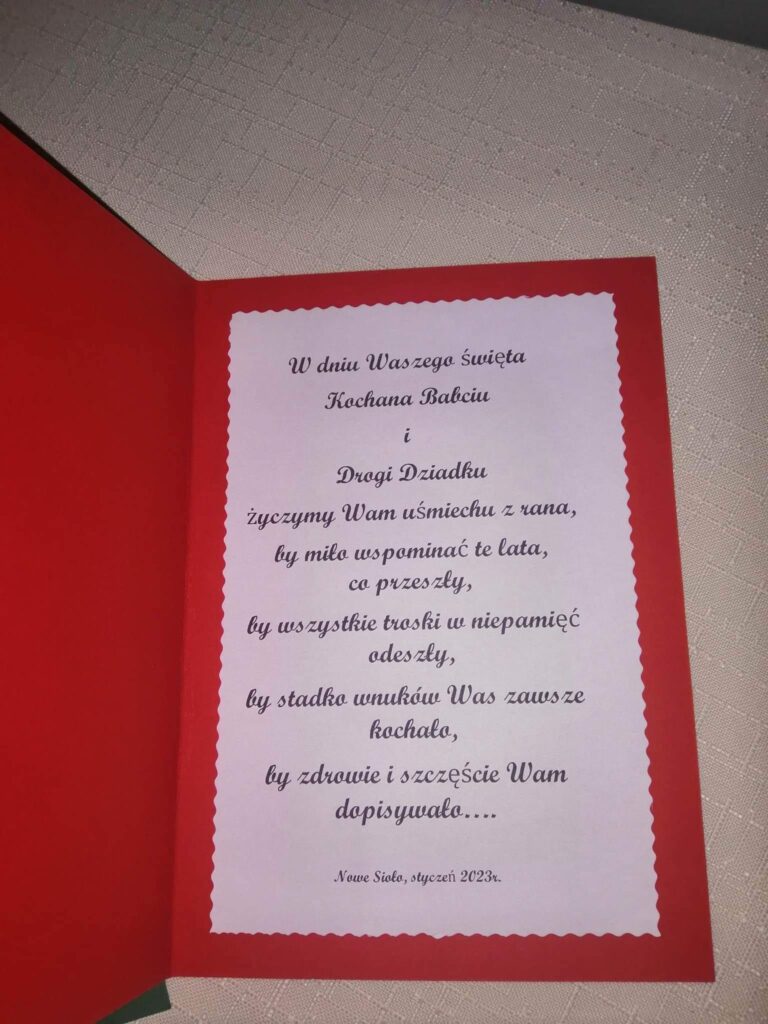 W dniu Waszego święta
Kochana Babciu
i
Drogi Dziadku
życzymy Wam uśmiechu z rana,
by miło wspominać te lata,
co przeszły,
by wszystkie troski w niepamięć
odeszły,
by stadko wnuków Was zawsze
kochało,
by zdrowie i szczęście Wam
dopisywało....
Nowe Sioło, styczeń 2023r.